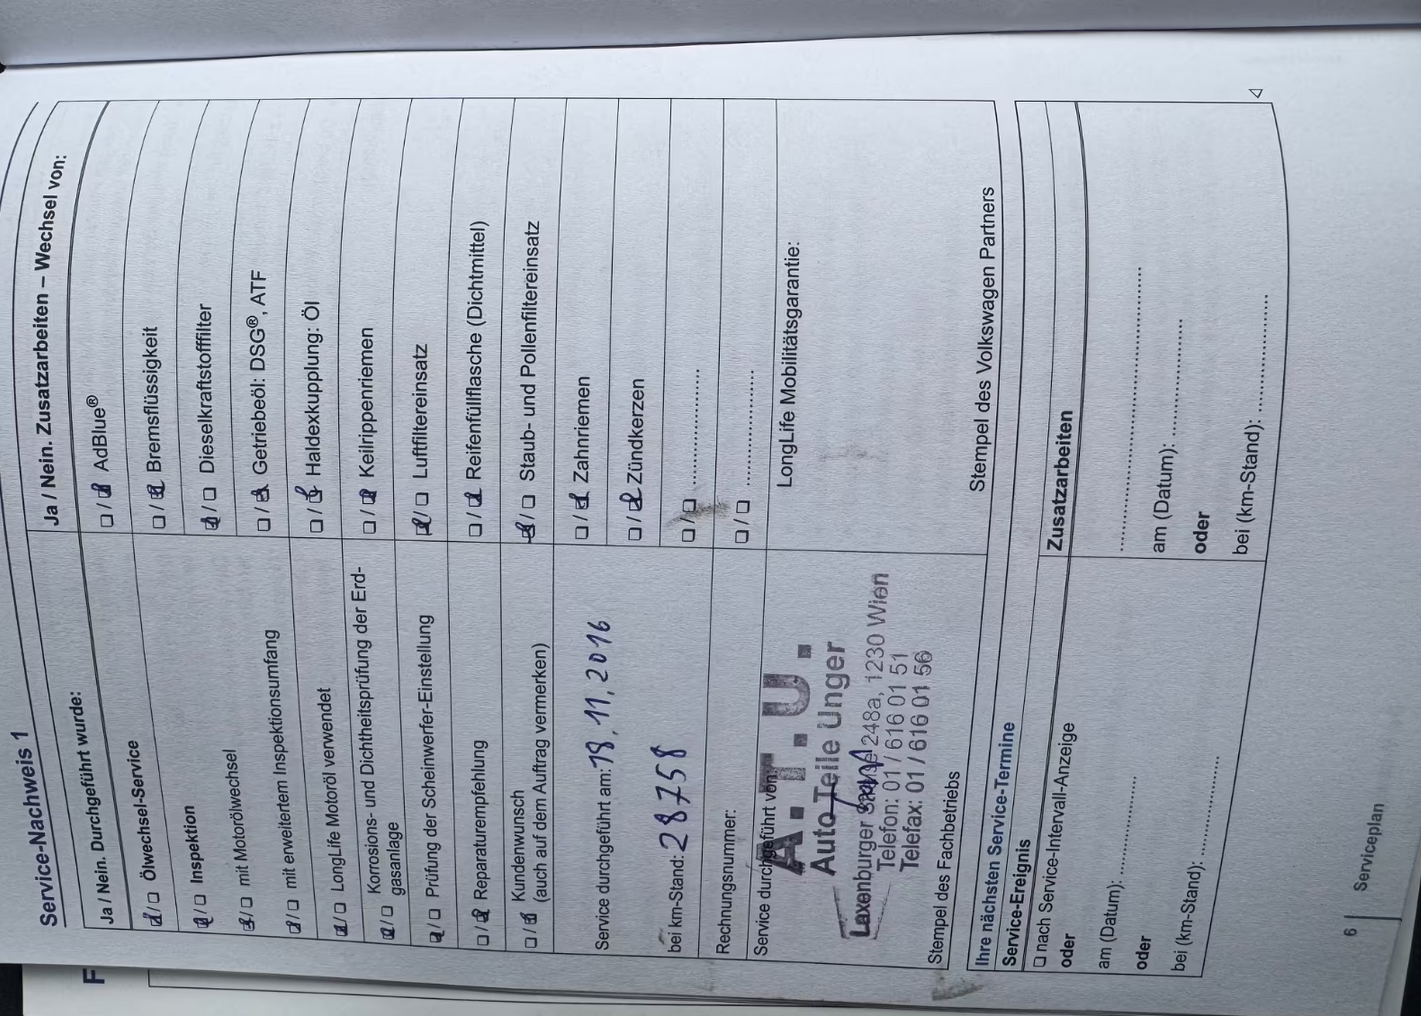 Service-Nachweis 1
Ja / Nein. Durchgeführt wurde:
Ölwechsel-Service
Inspektion
mit Motorölwechsel
mit erweitertem Inspektionsumfang
LongLife Motoröl verwendet
Korrosions- und Dichtheitsprüfung der Erd-
gasanlage
Prüfung der Scheinwerfer-Einstellung
Reparaturempfehlung
Kundenwunsch
(auch auf dem Auftrag vermerken)
Service durchgeführt am: 18.11.2016
bei km-Stand: 28758
Rechnungsnummer:
Service durchgeführt von:
A.T.U.
Auto Teile Unger
Laxenburger Straße 248a, 1230 Wien
Telefon: 01 / 616 01 51
Telefax: 01 / 616 01 56
Stempel des Fachbetriebs
Ja / Nein. Zusatzarbeiten – Wechsel von:
AdBlue®
Bremsflüssigkeit
Dieselkraftstofffilter
Getriebeöl: DSG®, ATF
Haldexkupplung: Öl
Keilrippenriemen
Luftfiltereinsatz
Reifenfüllflasche (Dichtmittel)
Staub- und Pollenfiltereinsatz
Zahnriemen
Zündkerzen
LongLife Mobilitätsgarantie:
Stempel des Volkswagen Partners
Ihre nächsten Service-Termine
Service-Ereignis
nach Service-Intervall-Anzeige
oder
am (Datum):
oder
bei (km-Stand):
Zusatzarbeiten
am (Datum):
oder
bei (km-Stand):
6 Serviceplan
F